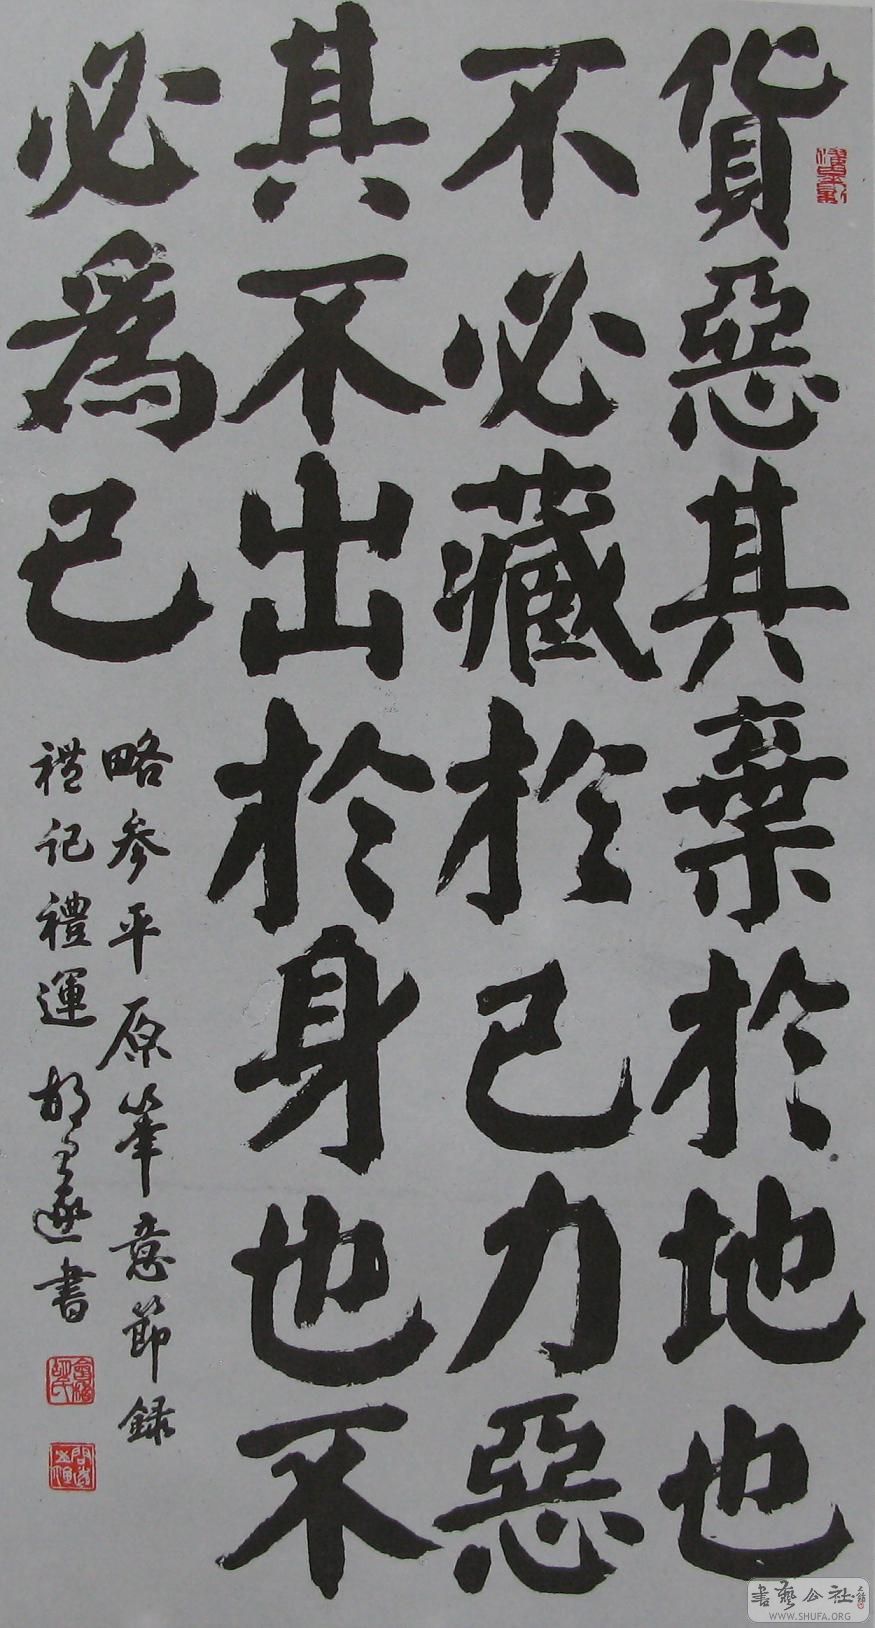 貨惡其棄於地也
不必藏於己力惡
其不出於身也不
必為己
略參平原筆意節錄
禮記禮運胡問遂書
書藝公社
WWW.SHUFA.ORG